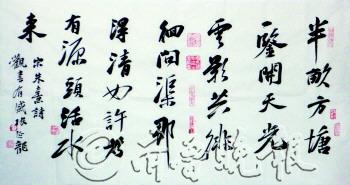 半畝方塘
一鑒開天光
雲影共徘
徊問渠那
得清如許為
有源頭活水
来
宋朱熹詩
觀書有感